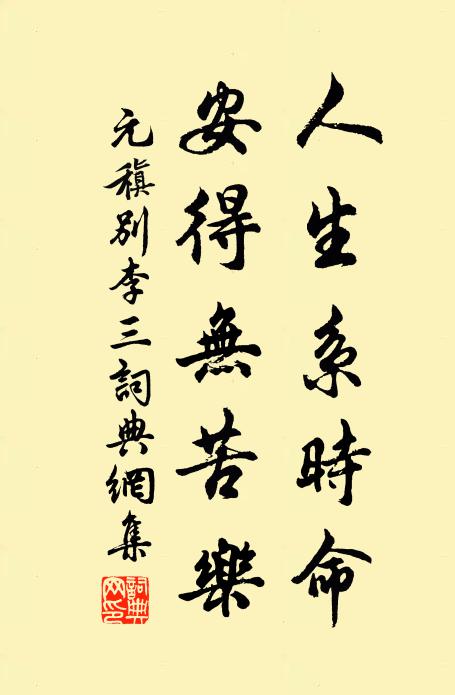 人生系時命
安得無苦樂
元稹別李三詞典網集
詞典網印